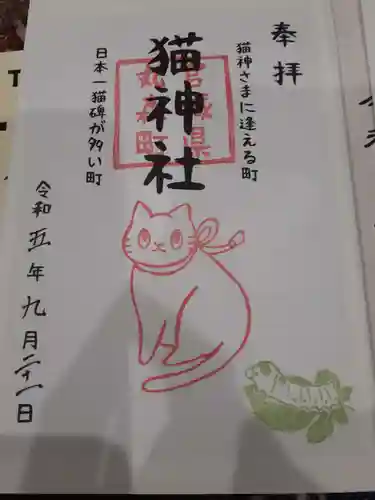 奉拝
猫神さまに逢える町
宮城県
丸森町
猫神社
日本一猫碑が多い町
令和五年九月二十一日